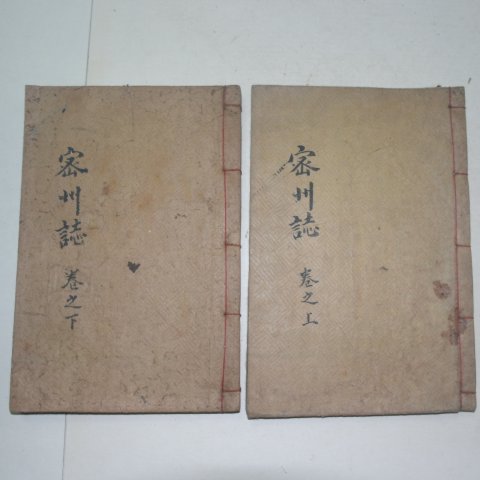 密州誌 卷之上
密州誌 卷之下